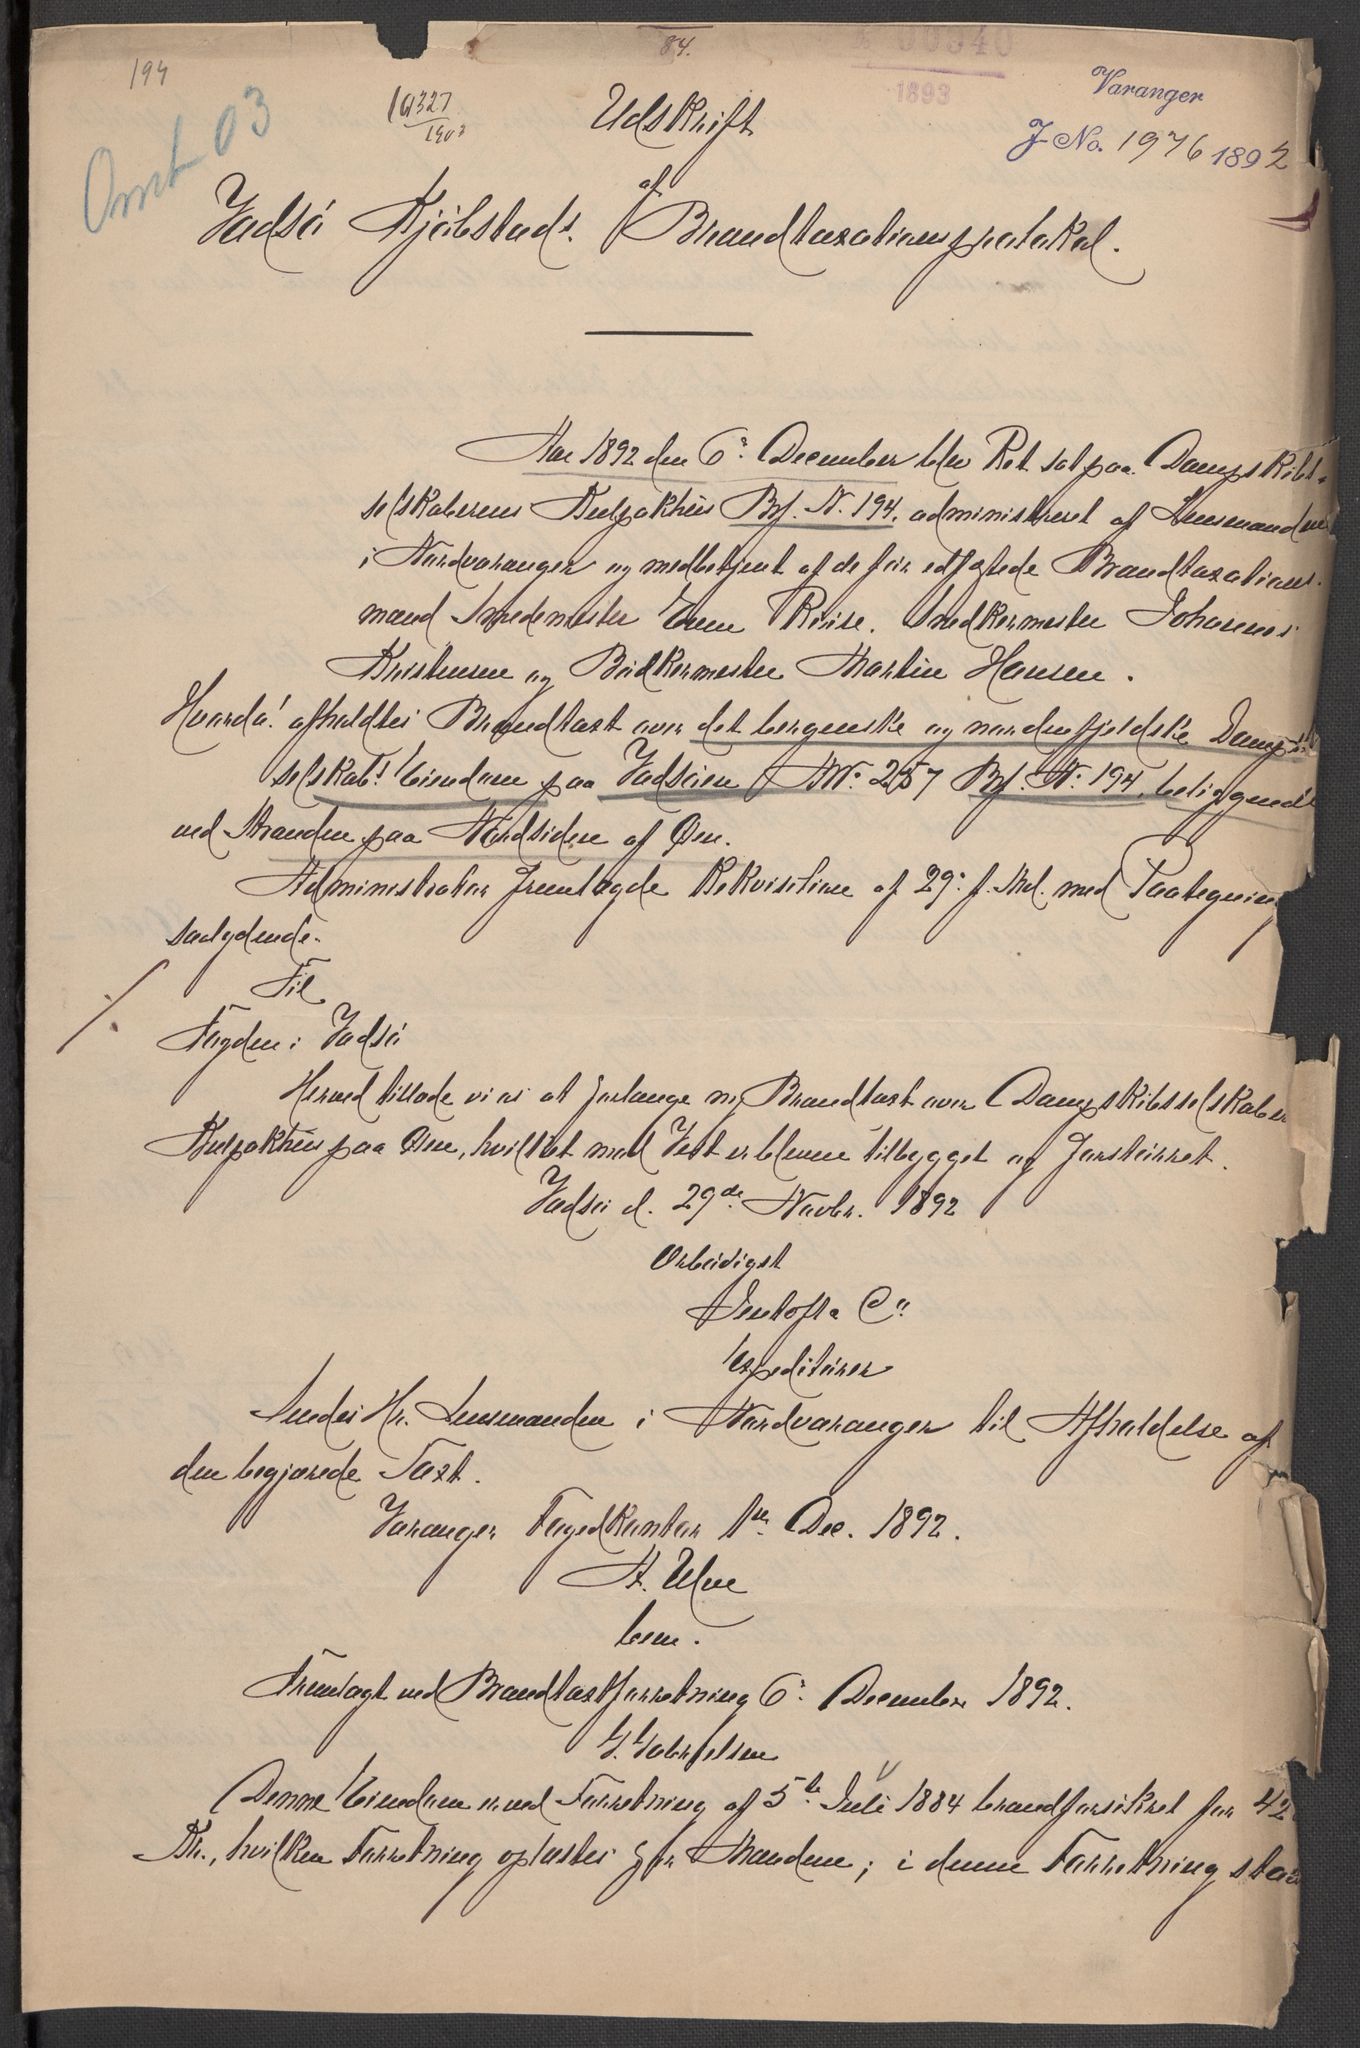 194
84.
00340
1893
Varanger
J No. 1976 1892
16327
1903
Omt 03
Udskrift
af
Vadsö Kjöbstads Brandtaxationsprotokol.
Aar 1892 den 6te December blev Ret sat paa Dampskibs-
selskabernes Kulpakhus Bf. N. 194, administreret af Lensmanden
i Nordvaranger og medbetjent af de før edfæstede Brandtaxations-
mænd Smedemester Snedkermester Johannes
Kristensen og Bødkermester Martin Hansen.
Hvorda! afholdtes Brandtaxt over det bergenske og nordenfjeldske Damps
selskabs Eiendom paa Vadsöen MNo 257 Bf. No. 194, beliggende
ved Stranden paa Nordsiden af Øen.
Administrator fremlagde Rekvisition af 29. f. Md. med Paategning
saalydende.
Til
Fogden i Vadsö
Herved tillade vi os at forlange ny Brandtaxt over Dampskibsselskaber
Kulpakhus paa Øen, hvilket mod Vest er bleven tilbygget og forstörret.
Vadsö d. 29de Novbr. 1892
Ærbödigst
Jentoft & Co
Expeditörer
Sendes Hr. Lensmanden i Nordvaranger til Afholdelse af
den begjærede Taxt.
Varanger Fogedkontor 1ste Dec. 1892.
A. Ulve
bem.
Fremlagt ved Brandtaxtforretning 6. December 1892.
G. Gabrielsen
Denne Eiendom er ved Forretning af 5te Juli 1884 brandforsikret for 42
Kr., hvilken Forretning oplæstes for Mændene; i denne Forretning staa